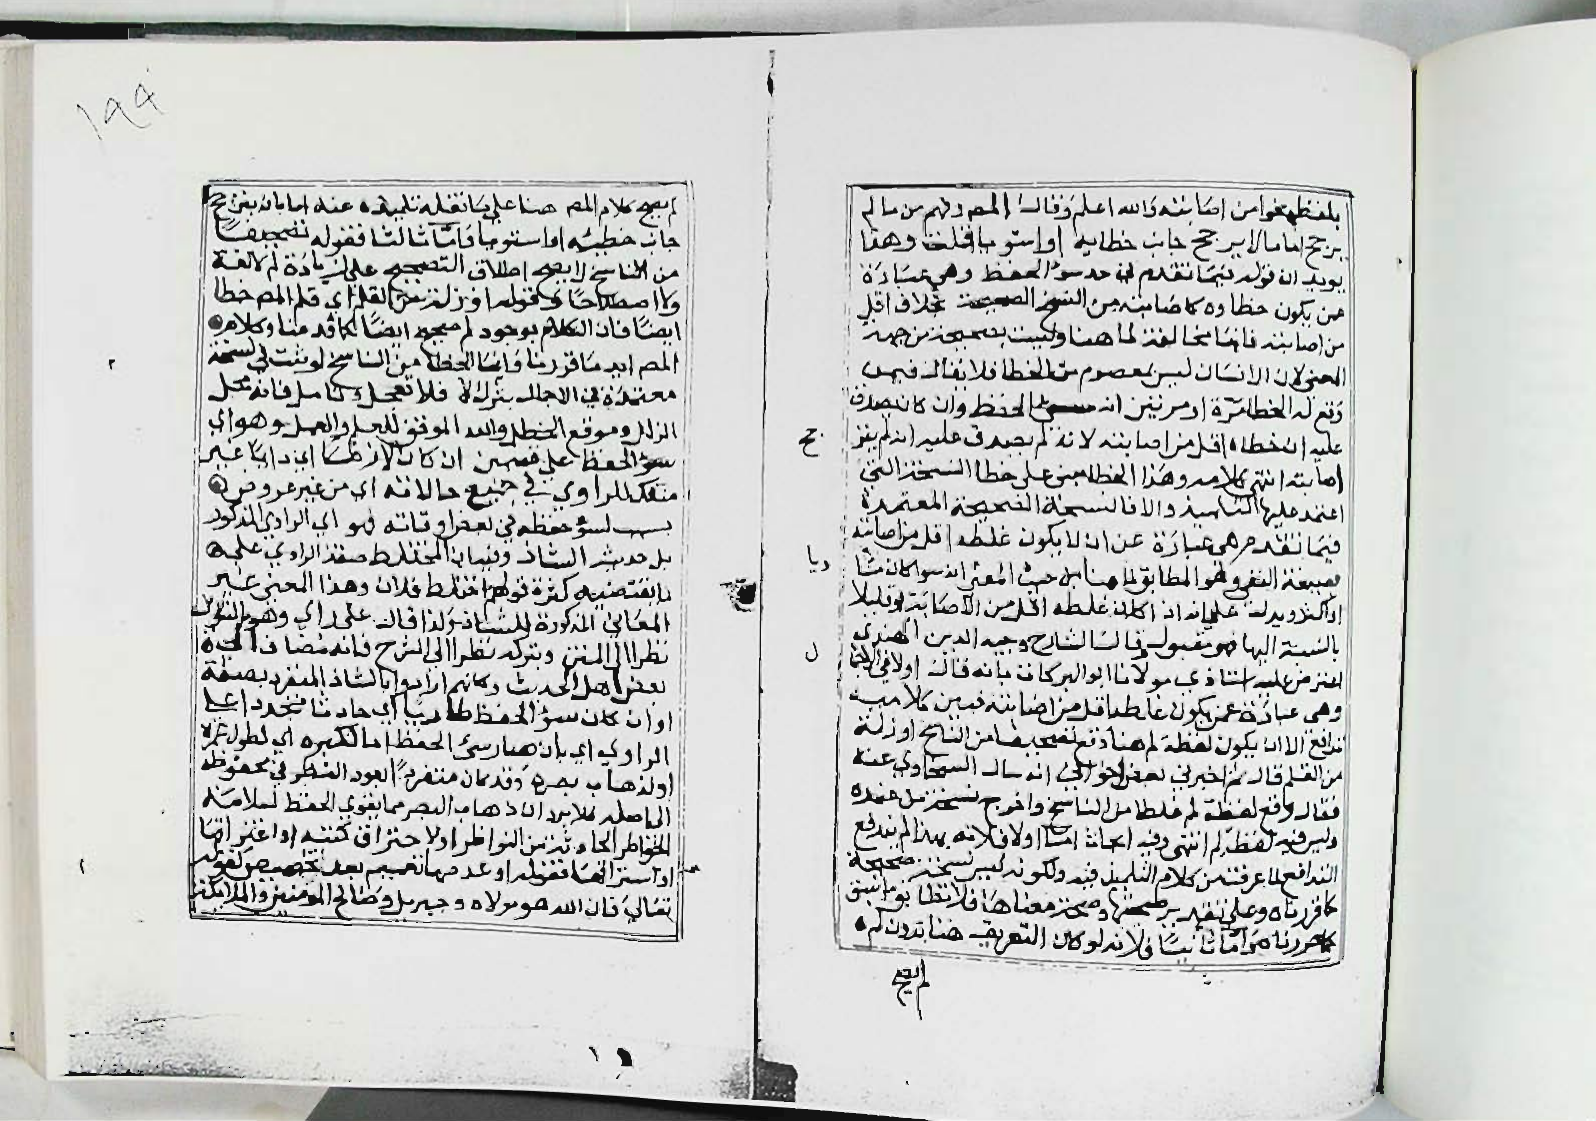 بلفظ نحوا من اصابته والله اعلم وقال المص ولهم من ما لم
يرجح اما ما لا يرجح جانب خطايه او استويا فلخا وهذا
يويد ان قوله فيما تقدم في حد سوء الحفظ وهي عبارة
عمن يكون خطاوه كاصابته من النسخ الصحيحة بخلاف اقل
من اصابته فانها مخالفة لما هنا وليست بصحيحة من جهة
المعنى لان الانسان ليس بمعصوم من الخطا فلا يقال فيمن
وقع له الخطا مرة او مرتين انه سيئ الحفظ وان كان يصدق
عليه ان خطاه اقل من اصابته لانه لم يصدق عليه انه لم
اصابته انتهى كلامه وهذا الخطا مبني على خطا النسخة التي
اعتمد عليها التلميذ والا فالنسخة الصحيحة المعتمدة
فيما تقدم هي عبارة عن ان لا يكون غلطه اقل من اصابته
بصيغة النفي وهو المطابق لما هنا من حيث المعنى انه سوا كان
او اكثر ويدل على انه اذا كان غلطه اقل من الاصابة او قليلا
بالنسبة اليها فهو مقبول قال الشارح وجيه الدين الهندي
اعترض عليه استاذي مولانا ابو البركات بانه قال اولا في
وهي عبارة عمن يكون غلطه اقل من اصابته فبين كلاميه
تدافع الا ان يكون لفظة لم هنا وقع تصحيفا من الناسخ او زلة
من القلم قال ثم اخبرني بعض اخوالي انه سال السخاوي عنه
فقال وقع لفظة لم غلطا من الناسخ واخرج نسخة من عنده
وليس فيه لفظة لم انتهى وفيه ابحاث اما اولا فلانه بهذا لم يندفع
التدافع لما عرفته من كلام التلميذ فيه ولكونه ليس نسخة صحيحة
كما قررناه وعلى تقدير صحتها وصحة معناها فلا تطابق ما سبق
كما حررناه واما ثانيا فلانه لو كان التعريف هنا بدون لم
لم يصح
١٩٩
لم يصح كلام المص هنا على ما نقله تلميذه عنه اما بان يترجح
جانب خطيه او استويا واما ثالثا فقوله تصحيفا
من الناسخ لا يصح اطلاق التصحيح على زيادة لم لا لغة
ولا اصطلاحا وقوله او زلة من القلم اي قلم المص خطا
ايضا فان الكلام بوجود لم صحيح ايضا كما قدمنا وكلام
المص ايد ما قررنا وانما الخطا من الناسخ لو ثبت في نسخة
معتمدة في الاجمال بترك لا فلا تعجل وتامل فانه محل
الزلل وموقع الخطل والله الموفق للعلم والعمل وهو اي
سوء الحفظ على قسمين ان كان لازما اي دايما غير
منفك للراوي في جميع حالاته اي من غير عروض
سبب لسوء حفظه في بعض اوقاته فهو اي الراوي المذكور
بل حديثه الشاذ وبيان المختلط صفة الراوي على ما
ما يقتضيه كثرة قولهم اختلط فلان وهذا المعنى غير
المعاني المذكورة للشاذ ولذا قال على راي وهو بالتنوين
نظرا الى المتن وبتركه نظرا الى الشرح فانه مضاف الى
بعض اهل الحديث وكانهم ارادوا بالشاذ المنفرد بصفة
او ان كان سوء الحفظ طاريا اي حادثا متجددا على
الراوي اي بان صار سيئ الحفظ اما لكبره اي لطول عمره
او لذهاب بصره وقد كان متفرد العود النظر في محفوظه
الحاصله فلا يرد ان ذهاب البصر مما يقوي الحفظ لسلامة
الخواطر الحادثة من النواظر او لاحتراق كتبه او اغتراقها
او استراقها فقوله او عدمها تعميم بعد تخصيص لقوله
تعالى فان الله هو مولاه وجبريل وصالح المومنين والملايكة